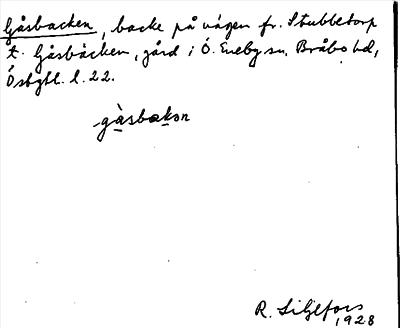 Gåsbacken, backe på vägen fr. Stubbetorp
t. Gåsbäcken, gård i Ö. Eneby sn, Bråbo hd,
Östgtl. l. 22.
gàsbakon
R. Liljefors
1928